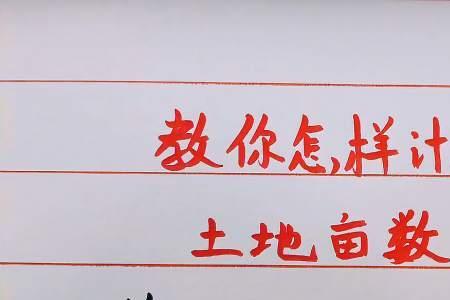 教你怎样计
土地亩数